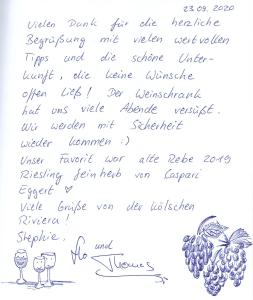 23.09.2020
Vielen Dank für die herzliche
Begrüßung mit vielen wertvollen
Tipps und die schöne Unter-
kunft, die keine Wünsche
offen ließ! Der Weinschrank
hat uns viele Abende versüßt.
Wir werden mit Sicherheit
wieder kommen :)
Unser Favorit war alte Rebe 2019
Riesling feinherb von Caspari
Eggert ♡
Viele Grüße von der kölschen
Riviera!
Stephie, Flo und
Thomas